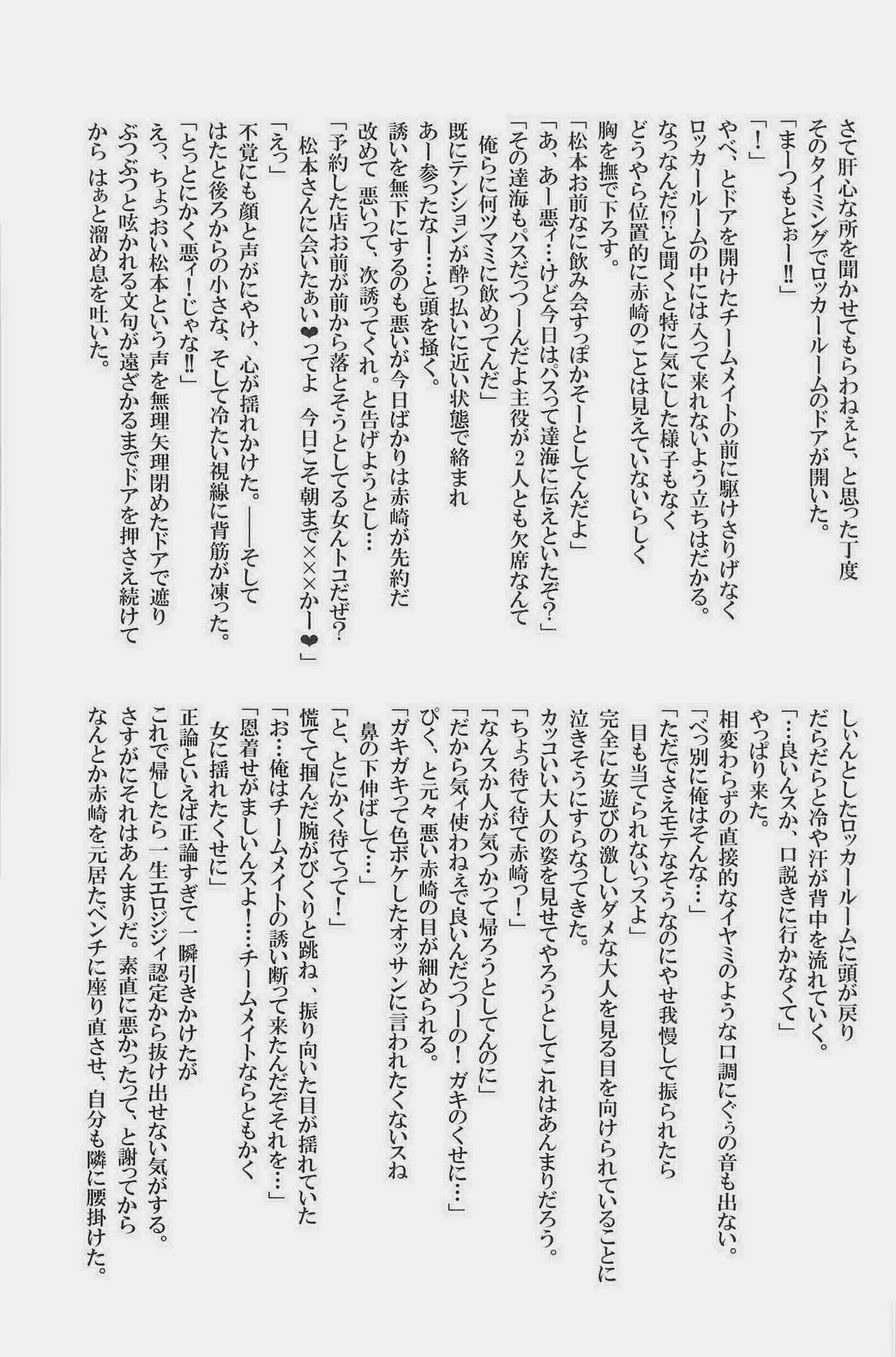 さて肝心な所を聞かせてもらわねぇと、と思った丁度
そのタイミングでロッカールームのドアが開いた。
「まーつもとぉー!!」
「！」
やべ、とドアを開けたチームメイトの前に駆けさりげなく
ロッカールームの中には入って来れないよう立ちはだかる。
なっなんだ!?と聞くと特に気にした様子もなく
どうやら位置的に赤崎のことは見えていないらしく
胸を撫で下ろす。
「松本お前なに飲み会すっぽかそーとしてんだよ」
「あ、あー悪ィ…けど今日はパスって達海に伝えといたぞ？」
「その達海もパスだっつーんだよ主役が2人とも欠席なんて
俺らに何ツマミに飲めってんだ」
既にテンションが酔っ払いに近い状態で絡まれ
あー参ったなー……と頭を掻く。
誘いを無下にするのも悪いが今日ばかりは赤崎が先約だ
改めて 悪いって、次誘ってくれ。と告げようとし…
「予約した店お前が前から落とそうとしてる女んトコだぜ？
松本さんに会いたぁい♥ってよ 今日こそ朝まで×××かー♥」
「えっ」
不覚にも顔と声がにやけ、心が揺れかけた。――そして
はたと後ろからの小さな、そして冷たい視線に背筋が凍った。
「とっとにかく悪ィ！じゃな!!」
えっ、ちょっおい松本という声を無理矢理閉めたドアで遮り
ぶつぶつと呟かれる文句が遠ざかるまでドアを押さえ続けて
から はぁと溜め息を吐いた。
しぃんとしたロッカールームに頭が戻り
だらだらと冷や汗が背中を流れていく。
「…良いんスか、口説きに行かなくて」
やっぱり来た。
相変わらずの直接的なイヤミのような口調にぐぅの音も出ない。
「べっ別に俺はそんな…」
「ただでさえモテなそうなのにやせ我慢して振られたら
目も当てられないっスよ」
完全に女遊びの激しいダメな大人を見る目を向けられていることに
泣きそうにすらなってきた。
カッコいい大人の姿を見せてやろうとしてこれはあんまりだろう。
「ちょっ待て待て赤崎っ！」
「なんスか人が気つかって帰ろうとしてんのに」
「だから気ィ使わねぇで良いんだっつーの！ガキのくせに…」
ぴく、と元々悪い赤崎の目が細められる。
「ガキガキって色ボケしたオッサンに言われたくないスね
鼻の下伸ばして…」
「と、とにかく待てって！」
慌てて掴んだ腕がびくりと跳ね、振り向いた目が揺れていた
「お…俺はチームメイトの誘い断って来たんだぞそれを…」
「恩着せがましいんスよ！……チームメイトならともかく
女に揺れたくせに」
正論といえば正論すぎて一瞬引きかけたが
これで帰したら一生エロジジィ認定から抜け出せない気がする。
さすがにそれはあんまりだ。素直に悪かったって、と謝ってから
なんとか赤崎を元居たベンチに座り直させ、自分も隣に腰掛けた。